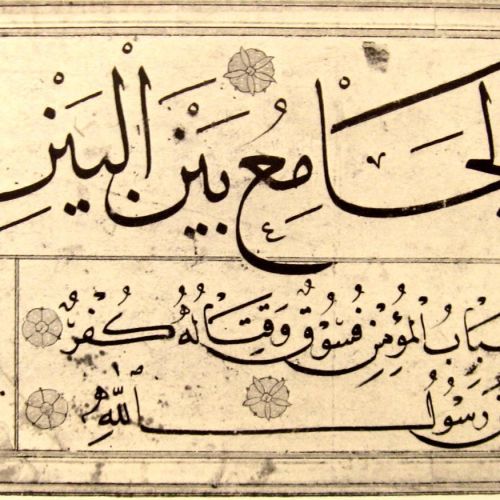 لجَامِعُ بَيْنَ
بَابُ الْمُؤْمِنِ فُسُوقٌ وَقِتَالُهُ كُفْرٌ
رَسُولُ اللّٰهِ